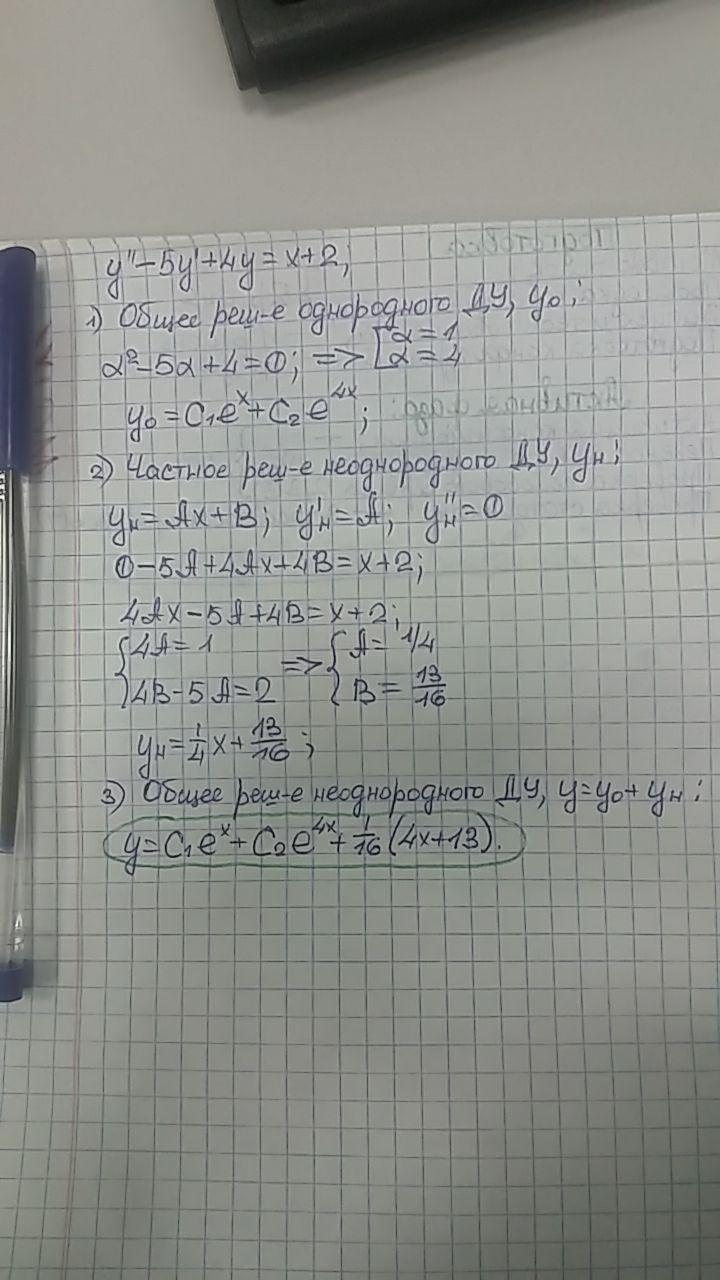 y''-5y'+4y=x+2;
1) Общее реш-е однородного ДУ, y₀:
α²-5α+4=0; => [α=1
α=4
y₀=C₁eˣ+C₂e⁴ˣ;
2) Частное реш-е неоднородного ДУ, yн:
yн=Ax+B; y'н=A; y''н=0
0-5A+4Ax+4B=x+2;
4Ax-5A+4B=x+2;
{4A=1 => {A=1/4
4B-5A=2 B=13/16
yн=1/4x+13/16;
3) Общее реш-е неоднородного ДУ, y=y₀+yн:
y=C₁eˣ+C₂e⁴ˣ+1/16(4x+13).